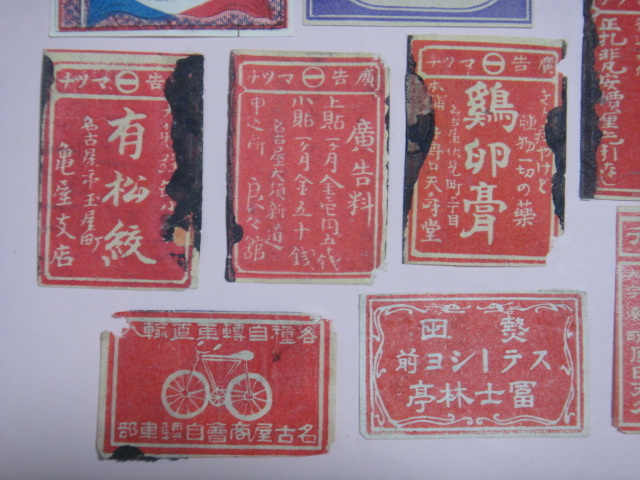 廣告 ㊀ マツチ
有松絞
名古屋市玉屋町
亀屋支店
廣告 ㊀ マツチ
廣告料
上貼一ヶ月金壱円五十銭
小貼一ヶ月金五十銭
名古屋大須新道
申込所
廣告 ㊀ マツチ
やけど
腫物一切の薬
鷄卵膏
名古屋伏見町二丁目
天寿堂
各種自轉車直輸入
名古屋商會自轉車部
熱田
ステーシヨ前
冨士林亭